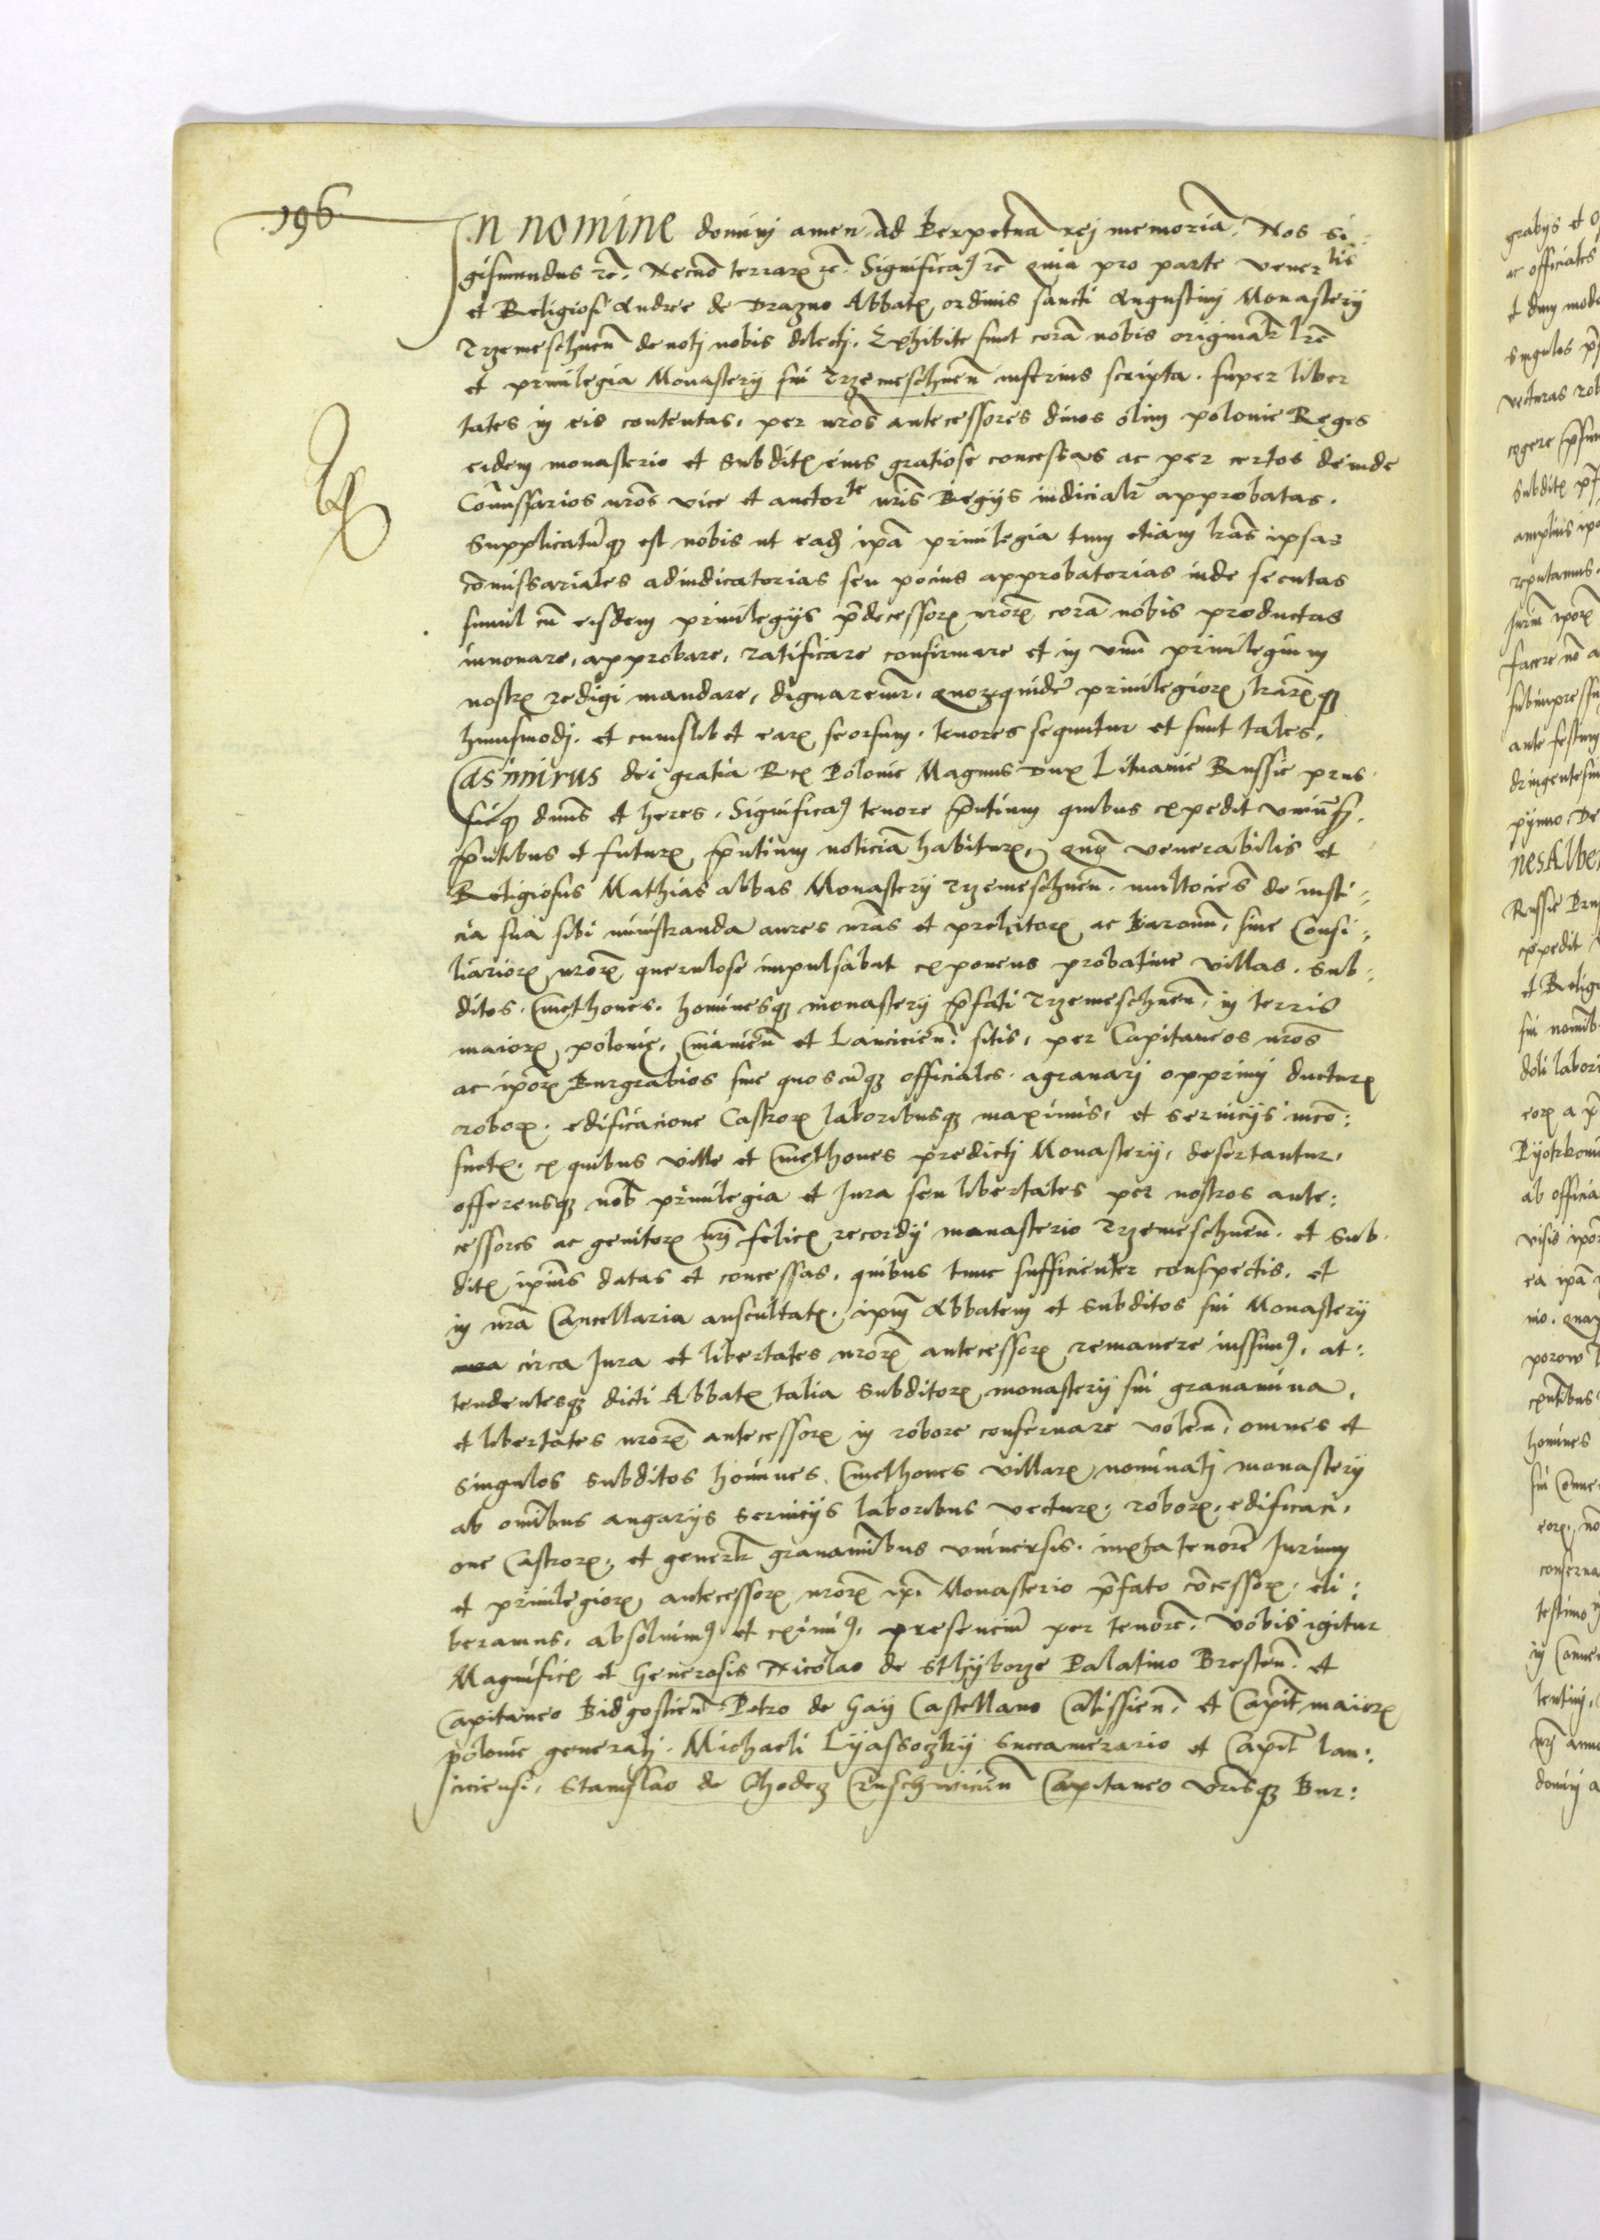 196
In nomine domini amen Ad Perpetuã rej memoriã. Nos Si:
gismundus rc̃. Necnõ terrarꝝ rc̃. Significaꝫ rc̃ Quia pro parte vener^lis
et Religiosi Andree de Drazno Abbatꝭ ordinis sancti Augustinj Monasterij
Trzemeschneñ deuotj nobis dilectj. Exhibite sunt corã nobis originał lrẽ
et priuilegia Monasterij sui Trzemeschneñ inferius scripta. super liber
tates in eis contentas, per nrõs antecessores diuos olim polonie Reges
eidem monasterio et Subditꝭ eius gratiose concessas ac per certos deinde
Com̃issarios nrõs vice et auctor^te nrĩs Regijs iudicialr̃ approbatas.
Supplicatũqꝫ est nobis ut eadꝫ ipã priuilegia tum etiam lrãs ipsas
com̃issariales adiudicatorias seu pocius approbatorias inde secutas
simul cũ eisdem priuilegijs p̃decessorꝝ nrõrꝝ corã nobis productas
innouare, approbare, ratificare confirmare et in vnũ priuilegium
nostrꝝ redigi mandare, dignaremr̃. Quorꝝquidẽ priuilegiorꝝ lrarꝝqꝫ
huiusmodj. et cuiuslibet earꝝ seorsum. tenores sequntur et sunt tales.
Casimirus dei gratia Rex Polonie Magnus Dux Lituanie Russie prus
sieqꝫ dnũs et heres. Significaꝫ tenore p̃ntium quibus expedit vniũsis.
p̃ntibus et futurꝭ p̃ntium noticiã habiturꝭ, Quõ venerabilis et
Religiosus Mathias abbas Monasterij Trzemeschneñ. multociẽs de iusti
cia sua sibi ministranda aures nrãs et prelatorꝝ ac Baronũ, siue Consi:
liariorꝝ nrõrꝝ querulose impulsabat exponens probatiue villas. sub:
ditos. Cmethones. hominesqꝫ monasterij p̃fati Trzemeschneñ, in terris
maiorꝭ polonie, Cuiauieñ et Lancicieñ. sitis, per Capitaneos nrõs
ac ipõrꝝ Burgrabios siue quoscũqꝫ officiales. agrauarj opprimj ducturꝭ
roborꝝ. edificacione Castrorꝝ laboribusqꝫ maximis, et seruicijs incõ:
suetꝭ. ex quibus ville et Cmethones predictj Monasterij, desertantur,
offerensqꝫ nob̃ priuilegia et Jura seu libertates per nostros ante:
cessores ac genitorꝭ nrĩ felicꝭ recordij monasterio Trzemeschneñ. et Sub
ditꝭ ipĩus datas et concessas. quibus tunc sufficienter conspectis. et
in nrã Cancellaria auscultatꝭ. ipm̃ Abbatem et Subditos sui Monasterij
circa Jura et libertates nrõrꝝ antecessorꝝ remanere iussimꝰ, at:
tendentesqꝫ dicti Abbatꝭ talia Subditorꝝ monasterij sui grauamina,
et libertates nrõrꝝ antecessorꝝ in robore conseruare voleñ, omnes et
singulos Subditos homines Cmethones villarꝝ nominatj monasterij
ab om̃ibus angarijs seruicijs laboribus vecturꝭ. roborꝝ. edificaci,
one Castrorꝝ. et generłr grauam̃ibus vniuersis. iuxta tenorẽ Jurium
et priuilegiorꝝ antecessorꝝ nrõrꝝ ipĩ Monasterio p̃fato cõcessorꝝ. eli:
beramus. absoluimꝰ et eximimꝰ, presenciũ per tenorẽ. Vobis igitur
Magnificꝭ et Generosis Nicolao de Sthyborze Palatino Bresteñ. et
Capitaneo Bidgostieñ. Petro de Gay Castellano Calissieñ. et Capit̃ maiorꝭ
polonie generalj. Michaeli Lyassoczkij Succamerario et Capit̃ lan:
iciensi, Stanislao de Chodecz Cruschwicieñ Capitaneo vrĩsqꝫ Bur: